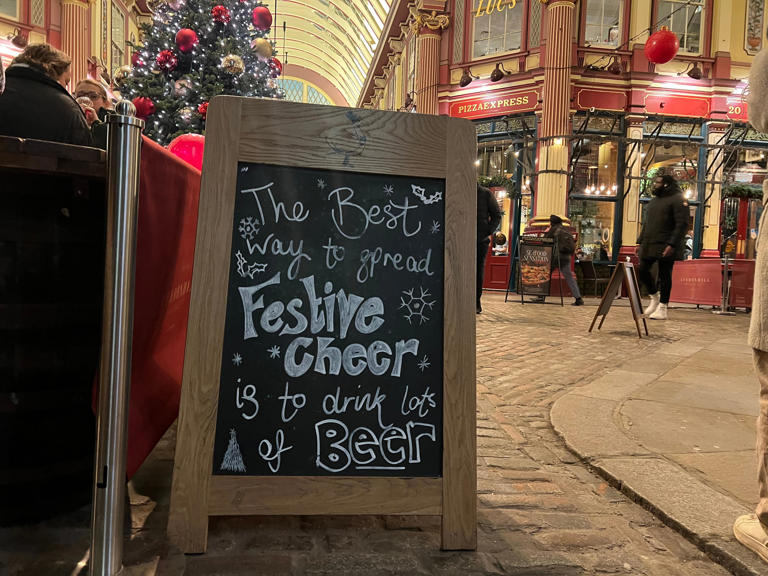 LUC'S
PIZZAEXPRESS
20
The Best
way to spread
Festive
cheer
is to drink lots
of Beer